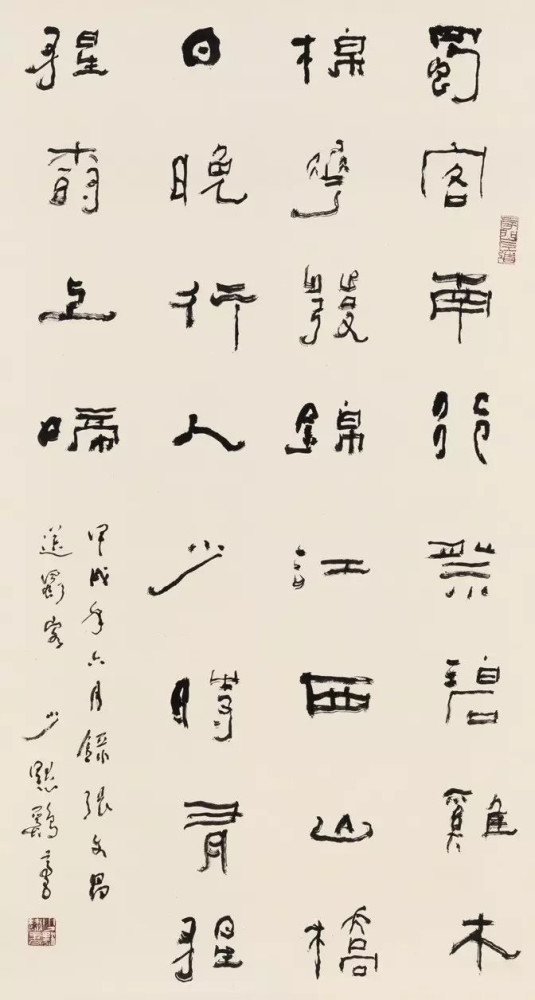 蜀客南行祭碧雞木
棉花發錦江西山橋
日晚行人少時有猩
猩樹上啼
甲戌年六月錄張文昌
送蜀客 少默